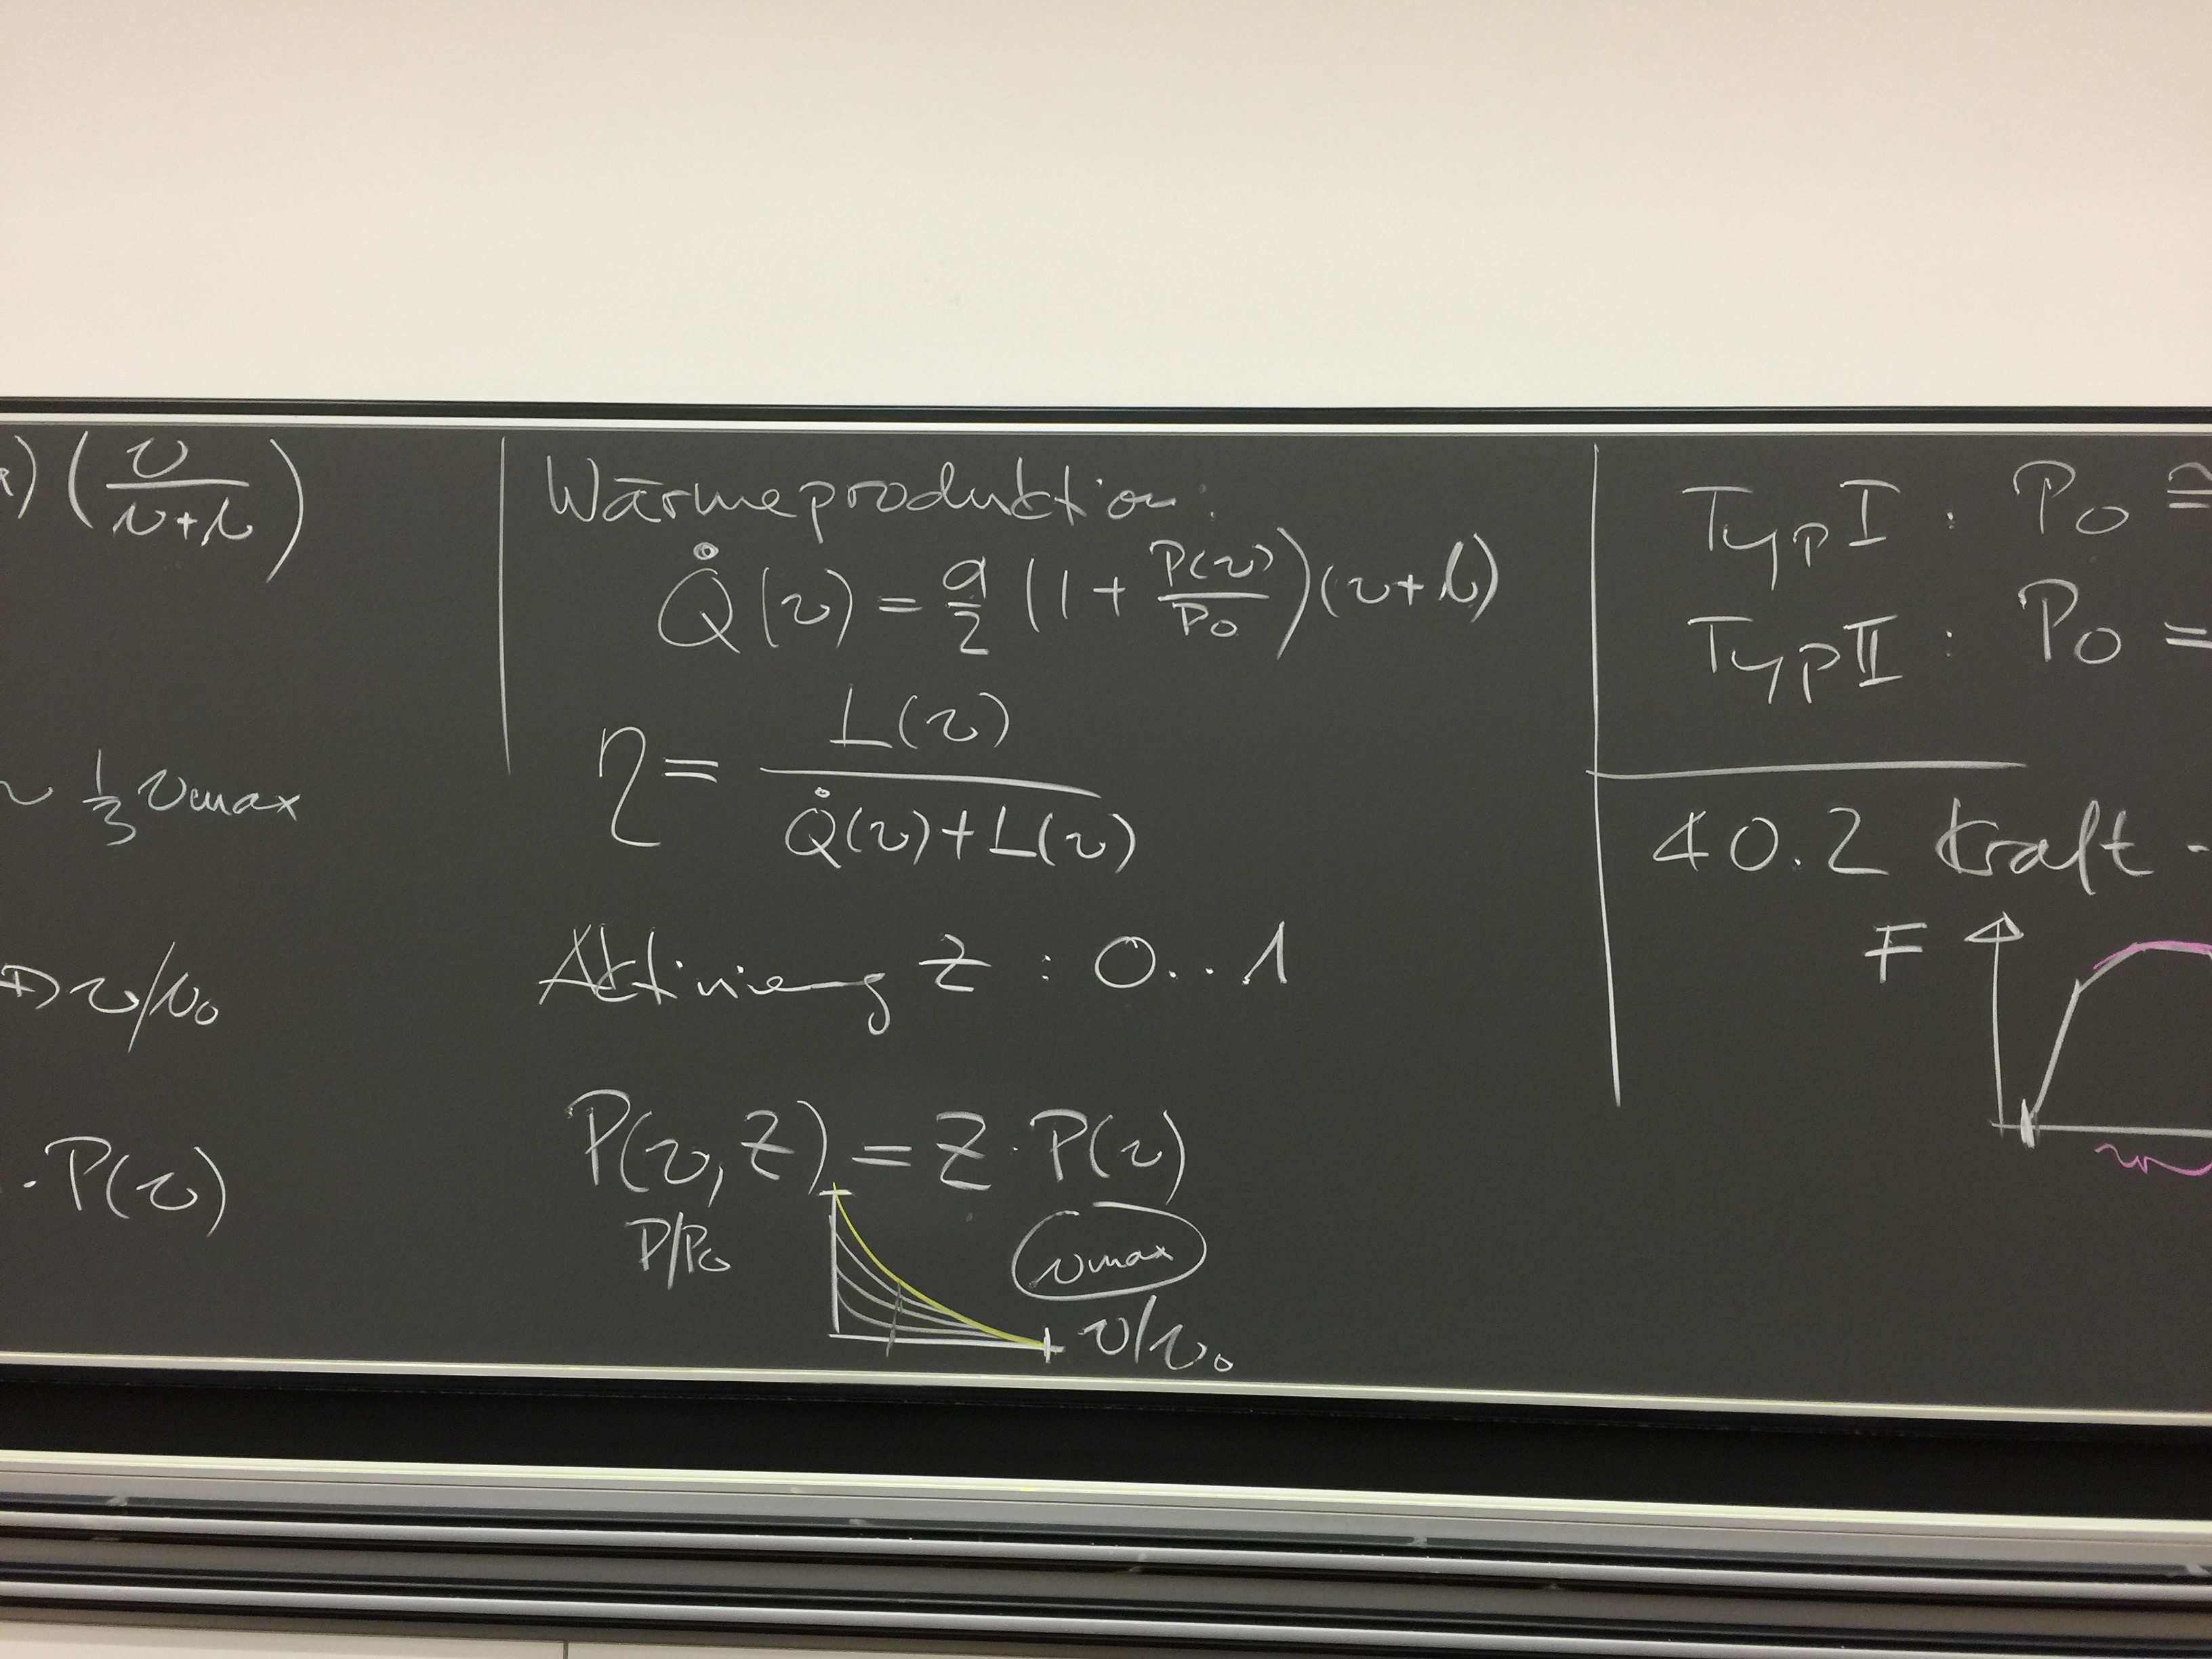 ) (v/(v+b))
~ 1/3 vmax
v/v₀
· P(v)
Wärmeproduktion:
Q̇(v) = a/2 (1 + P(v)/P₀)(v+b)
η = L(v)/(Q̇(v)+L(v))
Aktivierung z : 0..1
P(v,z) = z · P(v)
P/P₀
vmax
v/v₀
Typ I : P₀ ≅
Typ II : P₀ =
40.2 Kraft -
F